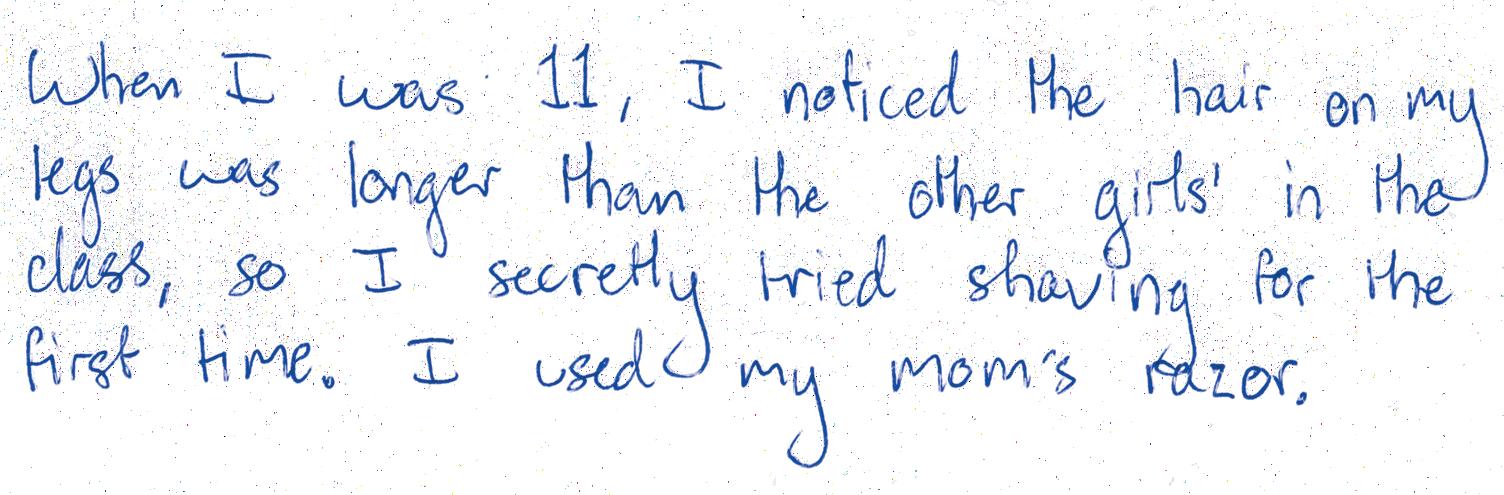 When I was 11, I noticed the hair on my
legs was longer than the other girls' in the
class, so I secretly tried shaving for the
first time. I used my mom's razor.